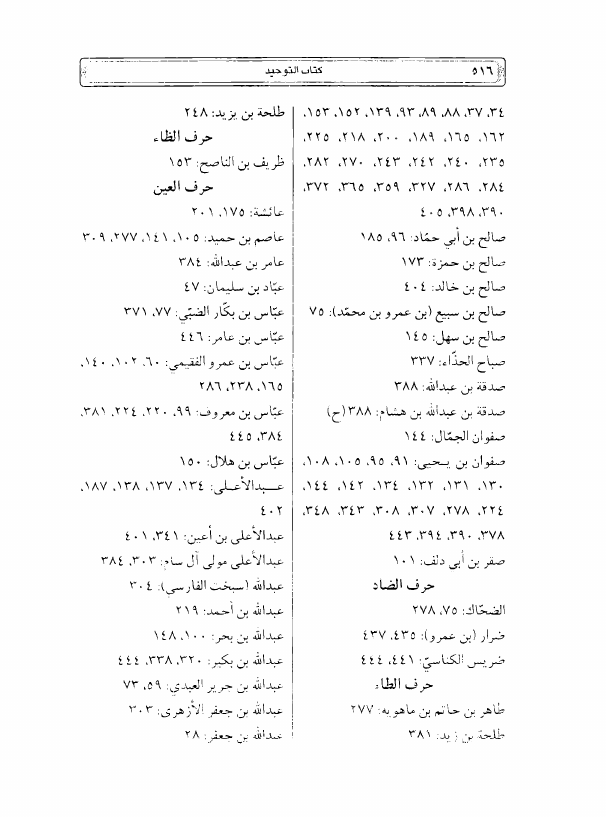 ٥١٦ كتاب التوحيد
٣٤، ٣٧، ٨٨، ٨٩، ٩٣، ١٣٩، ١٥٢، ١٥٣،
١٦٢، ١٦٥، ١٨٩، ٢٠٠، ٢١٨، ٢٢٥،
٢٣٥، ٢٤٠، ٢٤٢، ٢٤٣، ٢٧٠، ٢٨٢،
٢٨٤، ٢٨٦، ٣٢٧، ٣٥٩، ٣٦٥، ٣٧٢،
٣٩٠، ٣٩٨، ٤٠٥
صالح بن أبي حمّاد: ٩٦، ١٨٥
صالح بن حمزة: ١٧٣
صالح بن خالد: ٤٠٤
صالح بن سبيع (بن عمرو بن محمّد): ٧٥
صالح بن سهل: ١٤٥
صباح الحذّاء: ٣٣٧
صدقة بن عبدالله: ٣٨٨
صدقة بن عبدالله بن هشام: ٣٨٨(ح)
صفوان الجمّال: ١٤٤
صفوان بن يحيى: ٩١، ٩٥، ١٠٥، ١٠٨،
١٣٠، ١٣١، ١٣٢، ١٣٤، ١٤٢، ١٤٤،
٢٢٤، ٢٧٨، ٣٠٧، ٣٠٨، ٣٤٣، ٣٤٨،
٣٧٨، ٣٩٠، ٣٩٤، ٤٤٣
صقر بن أبي دلف: ١٠١
حرف الضاد
الضحّاك: ٧٥، ٢٧٨
ضرار (بن عمرو): ٤٣٥، ٤٣٧
ضريس الكناسيّ: ٤٤١، ٤٤٤
حرف الطاء
طاهر بن حاتم بن ماهويه: ٢٧٧
طلحة بن زيد: ٣٨١
طلحة بن يزيد: ٢٤٨
حرف الظاء
ظريف بن الناصح: ١٥٣
حرف العين
عائشة: ١٧٥، ٢٠١
عاصم بن حميد: ١٠٥، ١٤١، ٢٧٧، ٣٠٩
عامر بن عبدالله: ٣٨٤
عبّاد بن سليمان: ٤٧
عبّاس بن بكّار الضبّي: ٧٧، ٣٧١
عبّاس بن عامر: ٤٤٦
عبّاس بن عمرو الفقيمي: ٦٠، ١٠٢، ١٤٠،
١٦٥، ٢٣٨، ٢٨٦
عبّاس بن معروف: ٩٩، ٢٢٠، ٢٢٤، ٣٨١،
٣٨٤، ٤٤٥
عبّاس بن هلال: ١٥٠
عبدالأعلى: ١٣٤، ١٣٧، ١٣٨، ١٨٧،
٤٠٢
عبدالأعلى بن أعين: ٣٤١، ٤٠١
عبدالأعلى مولى آل سام: ٣٠٣، ٣٨٤
عبدالله (سبخت الفارسي): ٣٠٤
عبدالله بن أحمد: ٢١٩
عبدالله بن بحر: ١٠٠، ١٤٨
عبدالله بن بكير: ٣٢٠، ٣٣٨، ٤٤٤
عبدالله بن جرير العبدي: ٥٩، ٧٣
عبدالله بن جعفر الأزهري: ٣٠٣
عبدالله بن جعفر: ٢٨